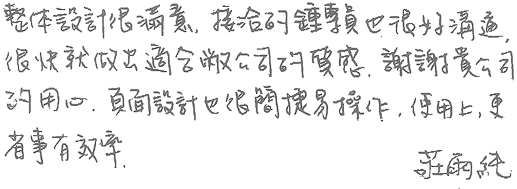 整体設計很滿意，接洽的鍾專員也很好溝通，
很快就做出適合敝公司的質感．謝謝貴公司
的用心．頁面設計也很簡捷易操作，使用上，更
省事有效率．
莊雨純